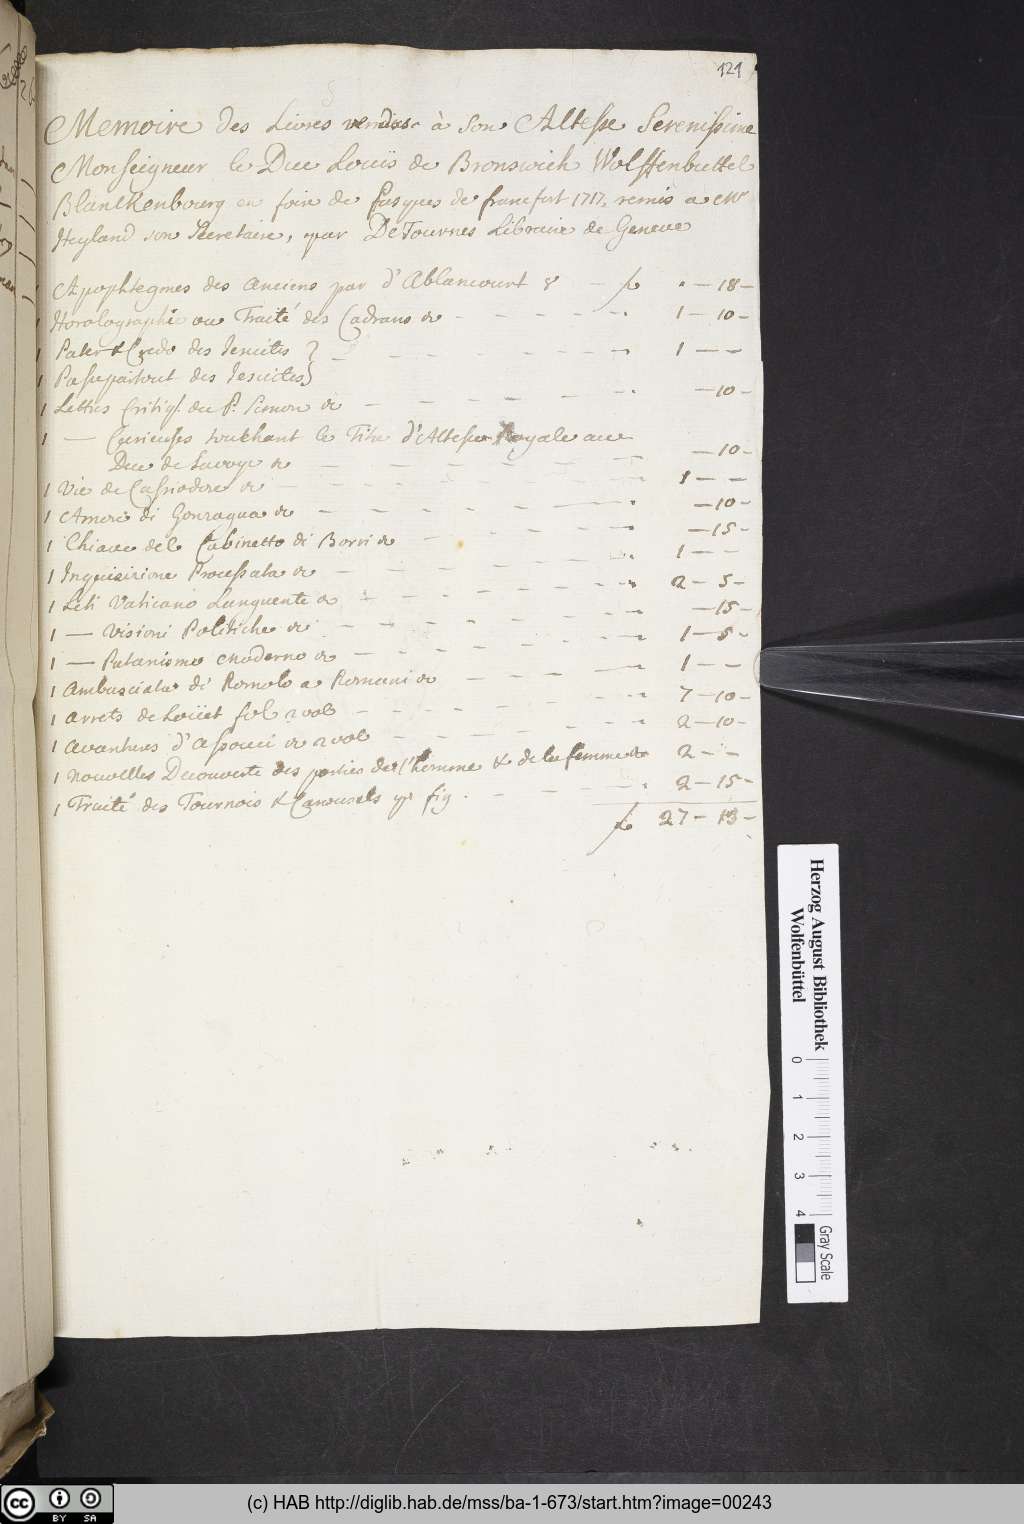 121
Memoire des Livres vendus à Son Altesse Serenissime
Monseigneur le Duc Louïs de Bronswich Wolffenbuttel
Blanckenbourg en foire de Pasques de francfort 1717, remis a Mr
Heyland son Secretaire, par De Tournes Libraire de Geneve
1 Apophtegmes des Anciens par d'Ablancourt 8 — 18 —
1 Horolographie ou Traité des Cadrans 12 1 — 10 —
1 Pater & Credo des Jesuites } 1 — —
1 Passepartout des Jesuites }
1 Lettres Critiq. du P. Simon 12 — 10 —
1 — Curieuses touchant le Titre d'Altesse Royale au
Duc de Savoye 12 — 10 —
1 Vie de Cassiodore 12 1 — —
1 Amori di Gonzagua 12 — 10 —
1 Chiave del Cabinetto di Borri 12 — 15 —
1 Inquisizione Processata 12 1 — —
1 Leti Vaticano Languente 12 2 — 5 —
1 — Visioni Politiche 12 — 15 —
1 — Putanismo Moderno 12 1 — 5 —
1 Ambasciata di Romolo a Romani 12 1 — —
1 Arrets de Loüet fol 2 vol 7 — 10 —
1 Avantures d'Assouci 12 2 vol 2 — 10 —
1 Nouvelles Decouverte des parties de l'homme & de la femme 12 2 — —
1 Traité des Tournois & Carousels 4° fig. 2 — 15 —
27 — 13 —
Herzog August Bibliothek
Wolfenbüttel
0 1 2 3 4
Gray Scale
cc BY SA
(c) HAB http://diglib.hab.de/mss/ba-1-673/start.htm?image=00243